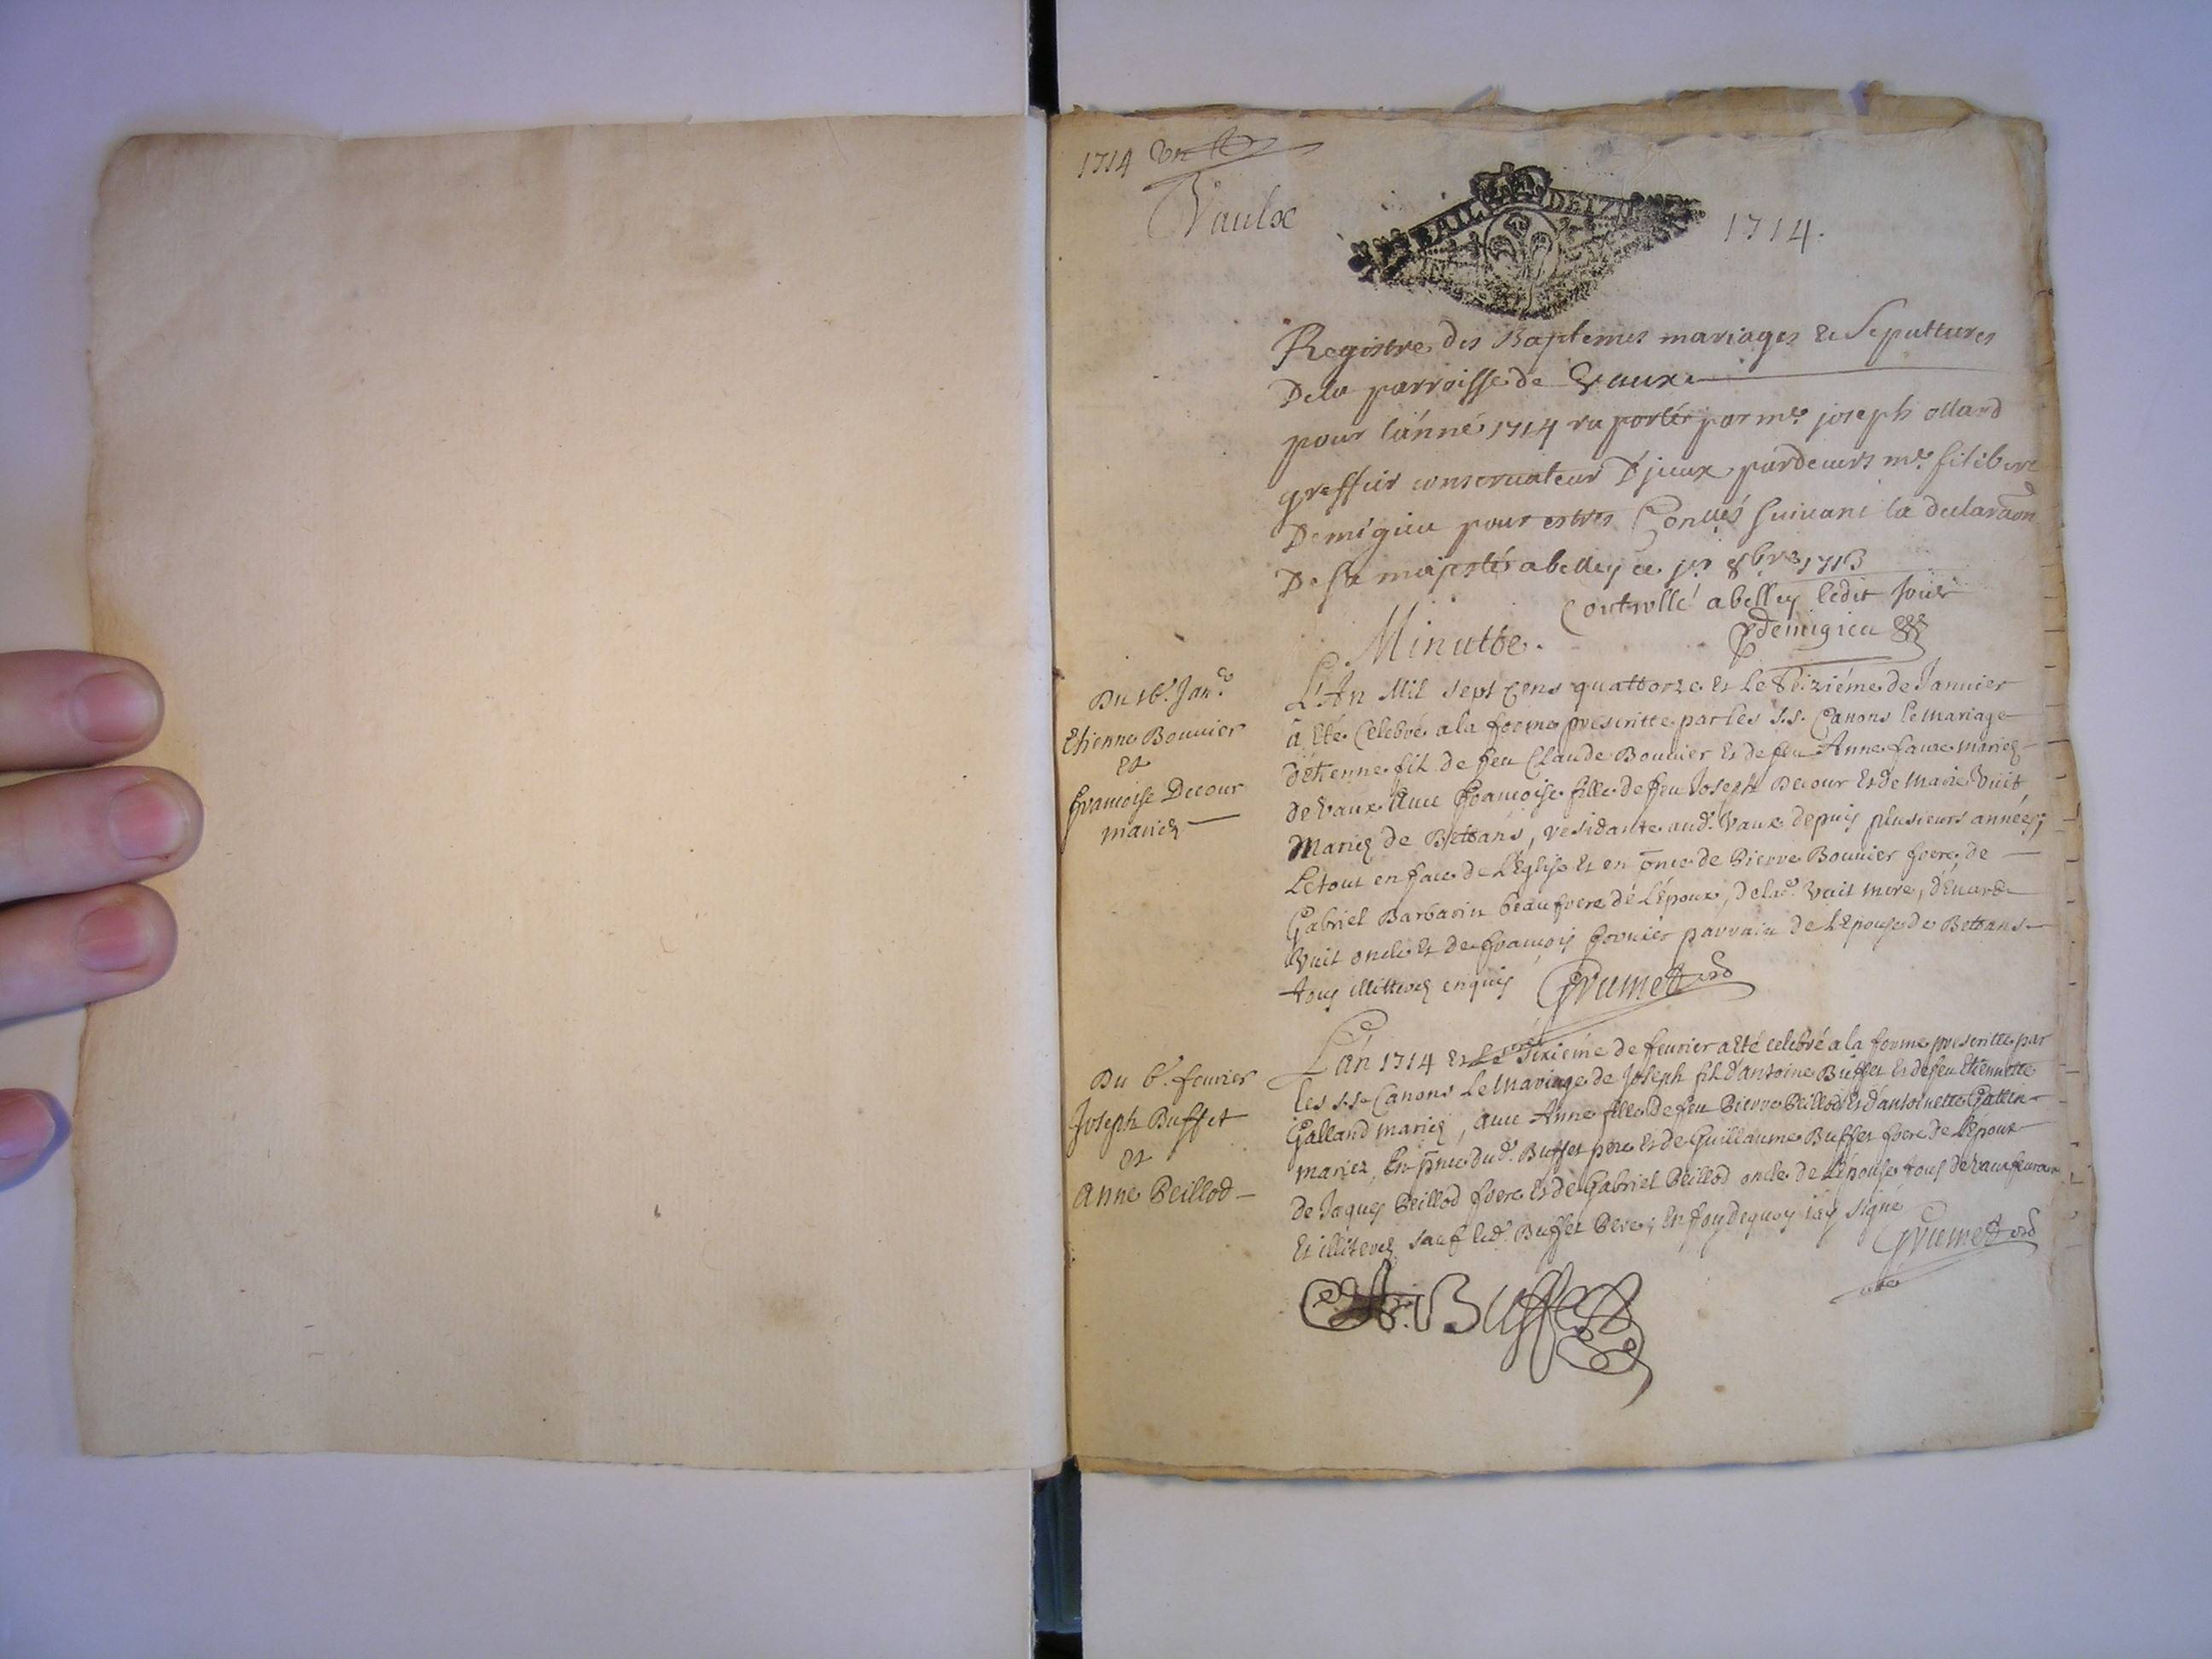 1714
Vaulx
BAIL DE
1714.
Registre des Baptemes mariages Et Sepultures
De la parroisse de Vaux
pour lánné 1714 ra portér par me. joseph ollard
greffier conservateur D'jceux pardevers me. filibert
Demigieu pour estres Conttés suivant la declaraon
De sa majestér a belley ce jer 8bre 1713
Controllé a belley ledit jour
Minutte.
Demigieu
Du 16e. Janer
Etienne Bouvier
Et
francoise Decour
mariez
L'An Mil sept cens quattorze Et Le Seiziéme de Janvier
à Eté Celebré a la forme prescritte par Les S.S. Canons Le Mariage
d'Etienne fils de feu Claude Bouvier Et de feu Anne faure mariez
de Vaux Avec francoise fille de feu Joseph Decour Et de Marie Vuit
Mariez de Bettans, residante aud. Vaux depuis plusieurs années;
Le tout en face de L'Eglise Et en pnce de Pierre Bouvier frere, de
Gabriel Barbarin beaufrere dé L'Epoux, de lad. Vuit mere, d'Enard
Vuit oncle Et de francois fornier parrain de L'Epouse de Bettans
tous illitterez enquis Grumet
curé
Du 6e. fevrier
Joseph Buffet
et
Anne Peillod
L'án 1714 Et Le Sixieme de fevrier a Eté celebré a la forme prescritte par
les S.S. Canons Le Mariage de Joseph fils d'Antoine Buffet Et de feu Etiennette
Galland mariez, avec Anne fille de feu Pierre Peillod Et d'antoinette Gallin
mariez, En pnce dud. Buffet pere Et de Guillaume Buffet frere de L'époux
de Jaques Peillod frere Et de Gabriel Peillod oncle de L'Epouse tous de Vaux
Et illiterez sauf led. Buffet Pere; En foy dequoy iay signé
Grumet
curé
Buffet